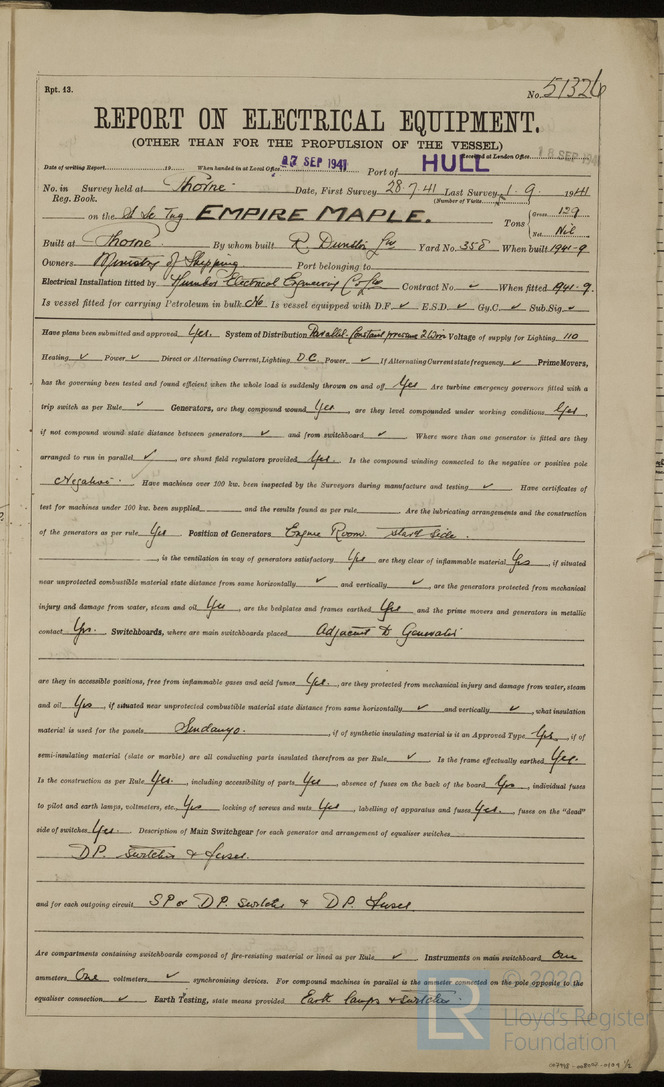 Rpt. 13.
No. 51326
REPORT ON ELECTRICAL EQUIPMENT.
(OTHER THAN FOR THE PROPULSION OF THE VESSEL)
Received at London Office 18 SEP 1941
Date of writing Report 19 When handed in at Local Office 17 SEP 1941 Port of HULL
No. in Reg. Book. Survey held at Thorne Date, First Survey 28.7.41 Last Survey 1.9.1941
(Number of Visits
on the St Sc Tug EMPIRE MAPLE. Tons { Gross 129 Net Nil
Built at Thorne. By whom built R Dunston Ltd Yard No. 358 When built 1941-9
Owners Ministry of Shipping Port belonging to
Electrical Installation fitted by Humber Electrical Engineering Co Ltd Contract No. ✓ When fitted 1941.9.
Is vessel fitted for carrying Petroleum in bulk No Is vessel equipped with D.F. ✓ E.S.D. ✓ Gy.C. ✓ Sub.Sig ✓
Have plans been submitted and approved Yes. System of Distribution Parallel. Constant pressure 2 Wire Voltage of supply for Lighting 110
Heating ✓ Power ✓ Direct or Alternating Current, Lighting D.C. Power ✓ If Alternating Current state frequency ✓ Prime Movers,
has the governing been tested and found efficient when the whole load is suddenly thrown on and off Yes Are turbine emergency governors fitted with a
trip switch as per Rule ✓ Generators, are they compound wound Yes, are they level compounded under working conditions Yes,
if not compound wound state distance between generators ✓ and from switchboard ✓ Where more than one generator is fitted are they
arranged to run in parallel ✓, are shunt field regulators provided Yes. Is the compound winding connected to the negative or positive pole
Negative. Have machines over 100 kw. been inspected by the Surveyors during manufacture and testing ✓ Have certificates of
test for machines under 100 kw. been supplied and the results found as per rule Are the lubricating arrangements and the construction
of the generators as per rule Yes Position of Generators Engine Room. Starb Side.
, is the ventilation in way of generators satisfactory Yes are they clear of inflammable material Yes, if situated
near unprotected combustible material state distance from same horizontally ✓ and vertically ✓, are the generators protected from mechanical
injury and damage from water, steam and oil Yes, are the bedplates and frames earthed Yes and the prime movers and generators in metallic
contact Yes. Switchboards, where are main switchboards placed Adjacent to Generator
are they in accessible positions, free from inflammable gases and acid fumes Yes., are they protected from mechanical injury and damage from water, steam
and oil Yes, if situated near unprotected combustible material state distance from same horizontally ✓ and vertically ✓, what insulation
material is used for the panels Sindanyo., if of synthetic insulating material is it an Approved Type Yes, if of
semi-insulating material (slate or marble) are all conducting parts insulated therefrom as per Rule ✓ Is the frame effectually earthed Yes.
Is the construction as per Rule Yes., including accessibility of parts Yes, absence of fuses on the back of the board Yes, individual fuses
to pilot and earth lamps, voltmeters, etc. Yes locking of screws and nuts Yes, labelling of apparatus and fuses Yes., fuses on the "dead"
side of switches Yes. Description of Main Switchgear for each generator and arrangement of equaliser switches
DP. Switches & Fuses.
and for each outgoing circuit SP or DP. switches & DP. Fuses
Are compartments containing switchboards composed of fire-resisting material or lined as per Rule ✓ Instruments on main switchboard One
ammeters One voltmeters ✓ synchronising devices. For compound machines in parallel is the ammeter connected on the pole opposite to the
equaliser connection ✓ Earth Testing, state means provided Earth lamps & switches.
© 2020
LR
Lloyd's Register
Foundation
007998-008005-0109 1/2